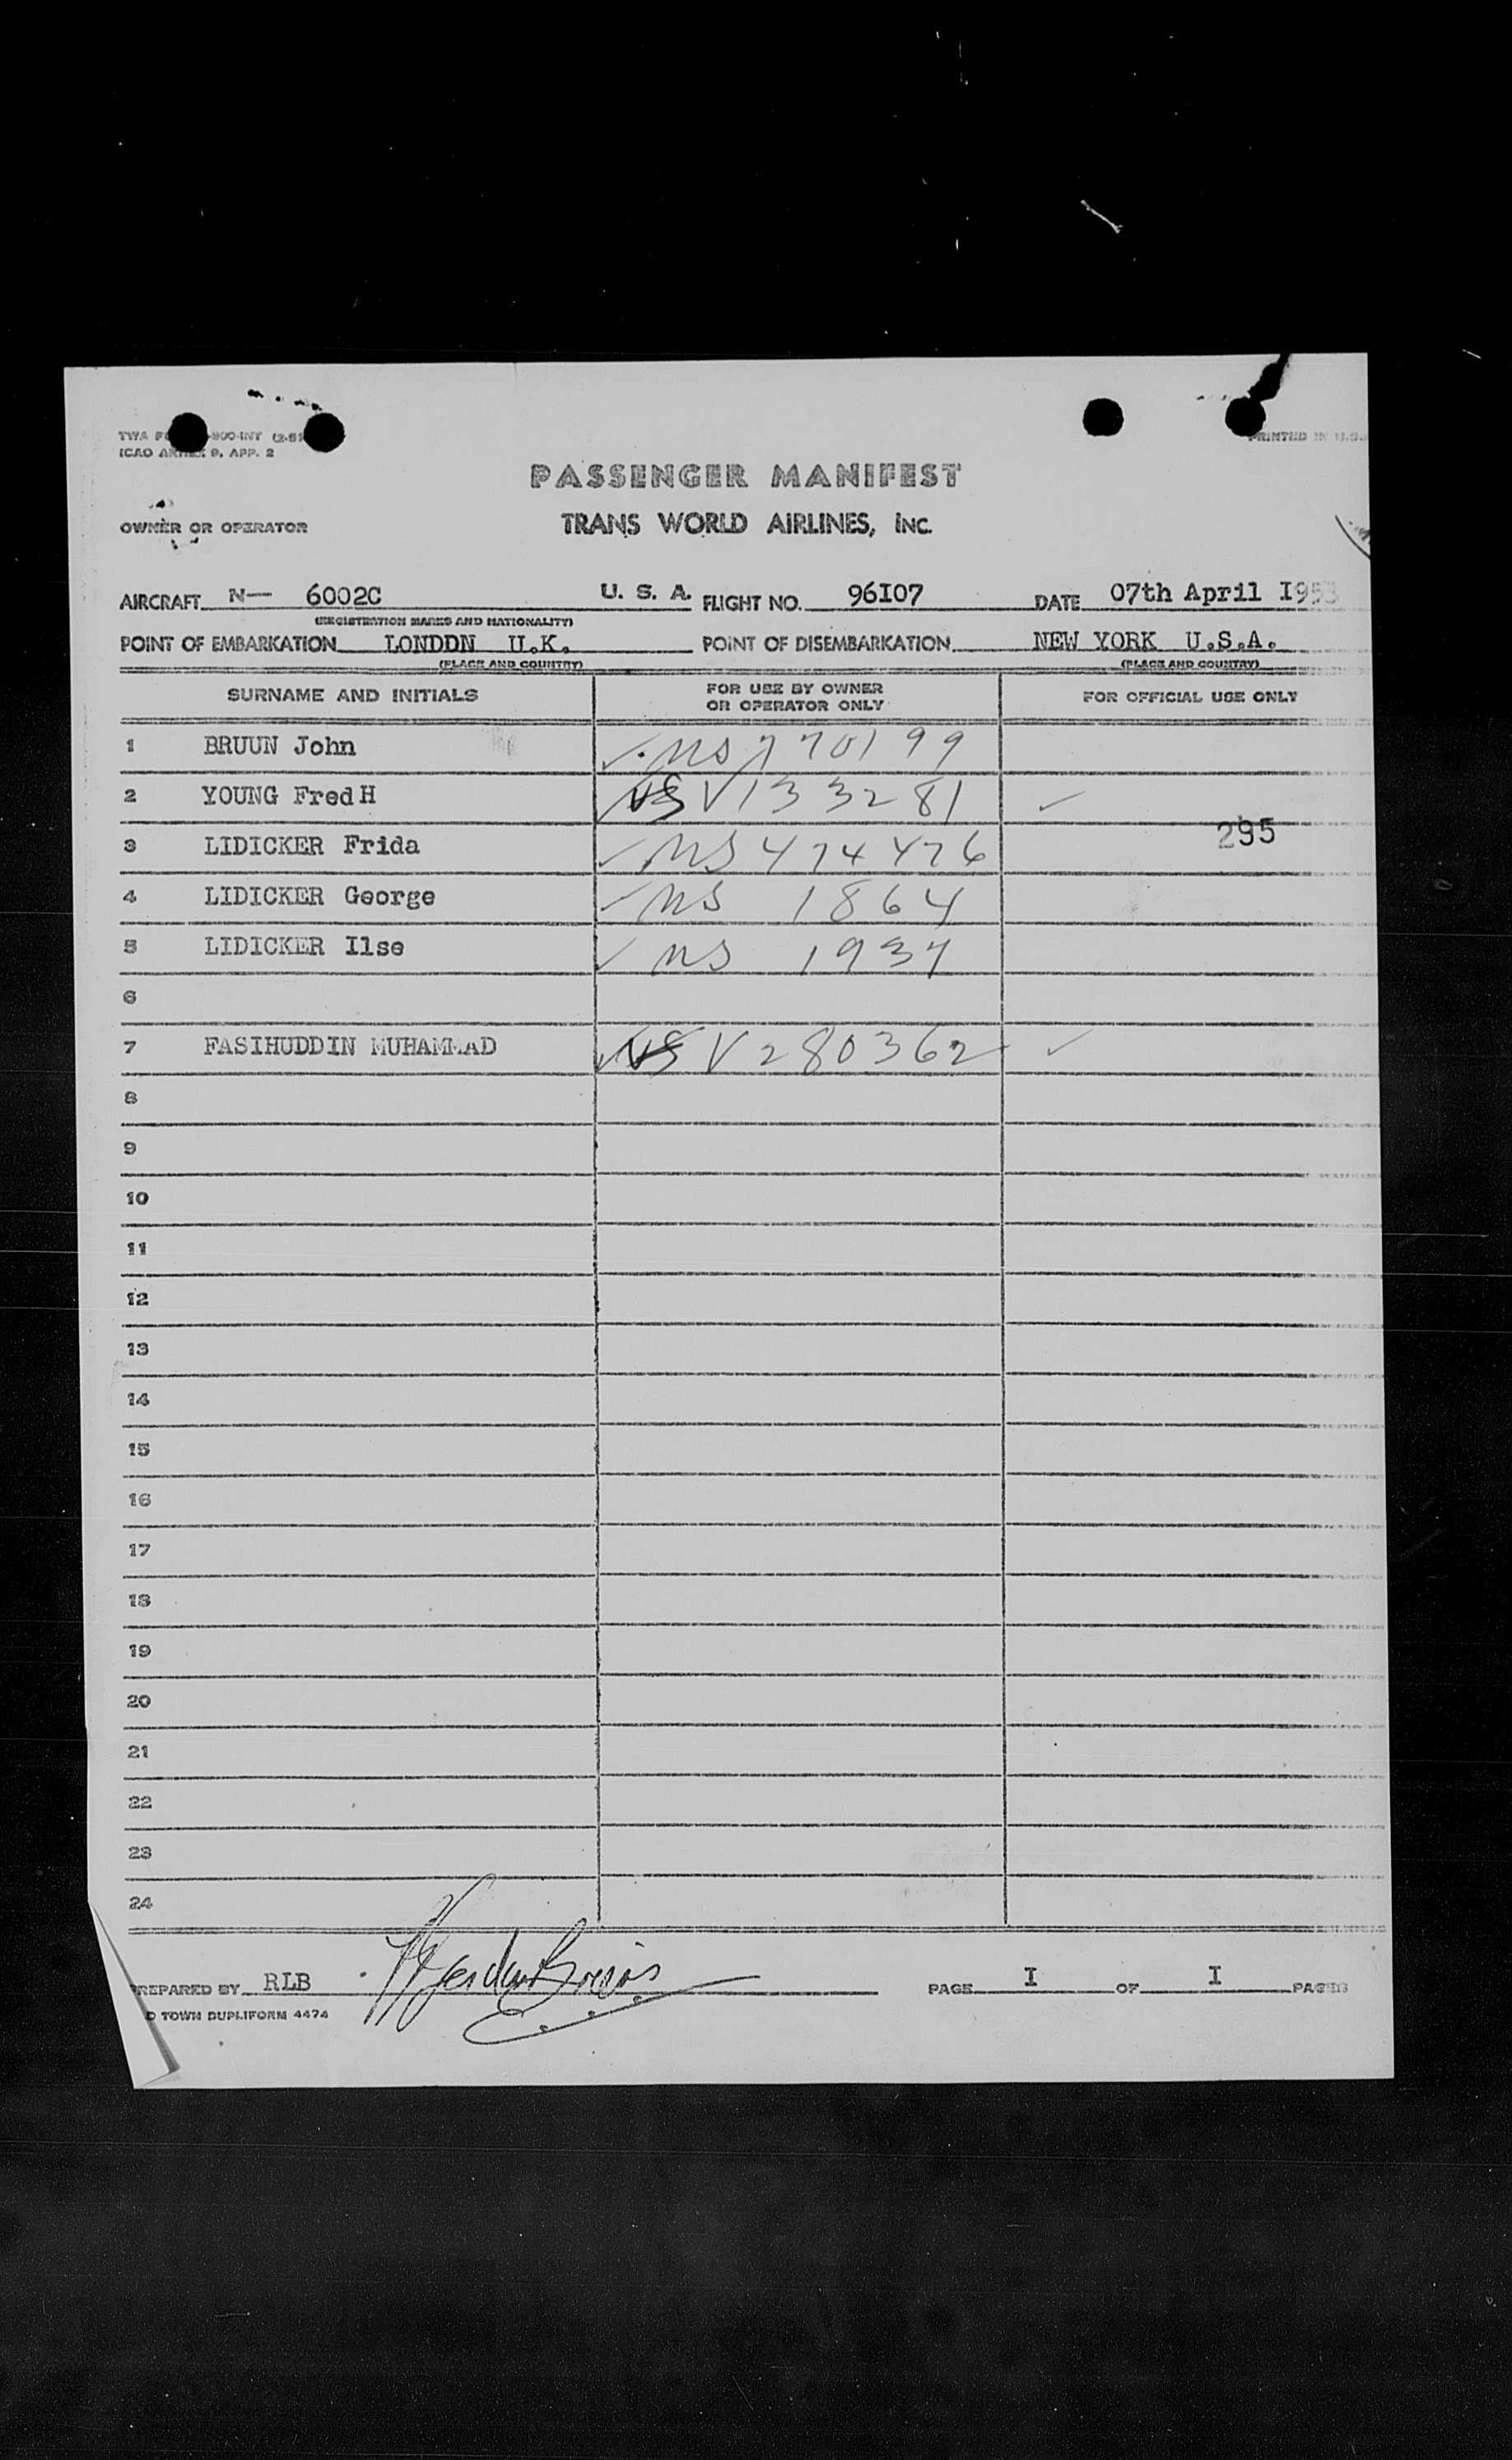 ICAO ANNEX 9, APP. 2
PRINTED IN U.S.
PASSENGER MANIFEST
OWNER OR OPERATOR TRANS WORLD AIRLINES, INC.
AIRCRAFT N— 6002C U. S. A. FLIGHT NO. 96I07 DATE 07th April I953
(REGISTRATION MARKS AND NATIONALITY)
POINT OF EMBARKATION LONDDN U.K. POINT OF DISEMBARKATION NEW YORK U.S.A.
(PLACE AND COUNTRY) (PLACE AND COUNTRY)
SURNAME AND INITIALS FOR USE BY OWNER OR OPERATOR ONLY FOR OFFICIAL USE ONLY
1 BRUUN John ✓ NS 770199
2 YOUNG Fred H V133281 ✓
295
3 LIDICKER Frida ✓ NS 474476
4 LIDICKER George ✓ NS 1864
5 LIDICKER Ilse ✓ NS 1937
6
7 FASIHUDDIN MUHAMMAD V280362 ✓
8
9
10
11
12
13
14
15
16
17
18
19
20
21
22
23
24
PREPARED BY RLB PAGE I OF I PAGES
D TOWN DUPLIFORM 4474